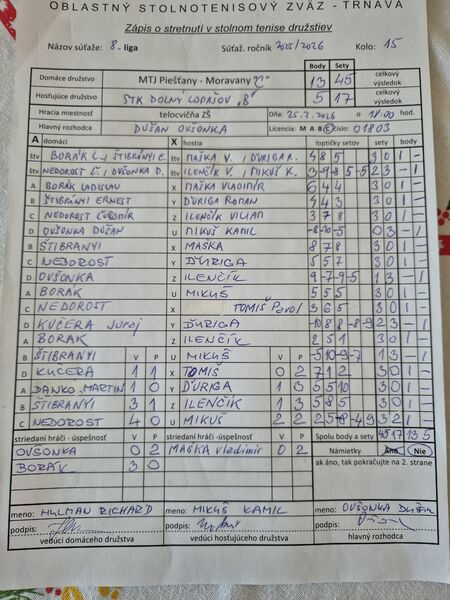 OBLASTNÝ STOLNOTENISOVÝ ZVÄZ - TRNAVA
Zápis o stretnutí v stolnom tenise družstiev
Názov súťaže: 8. liga Súťaž. ročník 2025/2026 Kolo: 15
Body Sety
Domáce družstvo MTJ Piešťany - Moravany "C" 13 45 celkový výsledok
Hosťujúce družstvo STK DOLNÝ LOPAŠOV „B" 5 17 celkový výsledok
Hracia miestnosť telocvičňa ZŠ Dňa: 25.2.2026 o 18:00 hod
Hlavný rozhodca DUŠAN OVŠONKA Licencia: M A B C číslo: 01803
A domáci X hostia loptičky setov sety body
štv BORÁK L., ŠTIBRÁNYI E. štv MAŠKA V., ĎURIGA R. 4 8 5 3 0 1 -
štv NEDOROST Ľ., OVŠONKA D. štv ILENČÍK V., MIKUŠ K. 2 3 - 1
A BORÁK LADISLAV X MAŠKA VLADIMÍR 6 4 4 3 0 1 -
B ŠTIBRANYI ERNEST Y ĎURIGA ROMAN 4 4 3 3 0 1 -
C NEDOROST ĽUBOMÍR Z ILENČÍK VILIAN 3 7 8 3 0 1 -
D OVŠONKA DUŠAN U MIKUŠ KAMIL -8 -10 -5 0 3 - 1
B ŠTIBRANYI X MAŠKA 8 7 8 3 0 1 -
C NEDOROST Y ĎURIGA 5 5 7 3 0 1 -
D OVŠONKA Z ILENČÍK 9 -7 -9 -5 1 3 - 1
A BORÁK U MIKUŠ 5 5 5 3 0 1 -
C NEDOROST X TOMIŠ Pavol 3 6 5 3 0 1 -
D KUČERA Juraj Y ĎURIGA -10 8 8 -8 -9 2 3 - 1
A BORÁK Z ILENČÍK 2 5 1 3 0 1 -
B ŠTIBRANYI V P U MIKUŠ V P -5 10 -9 -7 1 3 - 1
D KUČERA 1 1 X TOMIŠ 0 2 7 1 2 3 0 1 -
A DANKO MARTIN 1 0 Y ĎURIGA 1 3 5 5 10 3 0 1 -
B ŠTIBRANYI 3 1 Z ILENČÍK 1 3 5 8 5 3 0 1 -
C NEDOROST 4 0 U MIKUŠ 2 2 2 5 -8 -4 9 3 2 1 -
striedaní hráči - úspešnosť V P striedaní hráči - úspešnosť V P Spolu body a sety 45 17 13 5
OVŠONKA 0 2 MAŠKA Vladimír 0 2 Námietky Áno Nie
BORÁK 3 0 ak áno, tak pokračujte na 2. strane
meno: HULMAN RICHARD meno: MIKUŠ KAMIL meno: OVŠONKA DUŠAN
podpis: podpis: podpis:
vedúci domáceho družstva vedúci hosťujúceho družstva hlavný rozhodca